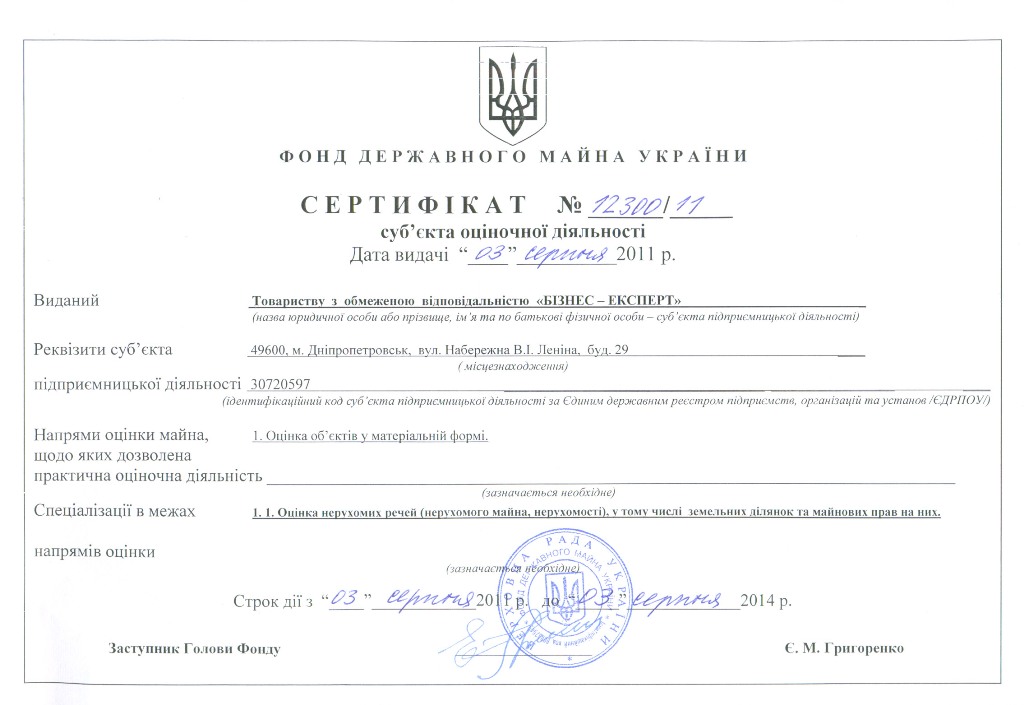 ФОНД ДЕРЖАВНОГО МАЙНА УКРАЇНИ
СЕРТИФІКАТ № 12300/11
суб’єкта оціночної діяльності
Дата видачі “03” серпня 2011 р.
Виданий Товариству з обмеженою відповідальністю «БІЗНЕС – ЕКСПЕРТ»
(назва юридичної особи або прізвище, ім’я та по батькові фізичної особи – суб’єкта підприємницької діяльності)
Реквізити суб’єкта 49600, м. Дніпропетровськ, вул. Набережна В.І. Леніна, буд. 29
( місцезнаходження)
підприємницької діяльності 30720597
(ідентифікаційний код суб’єкта підприємницької діяльності за Єдиним державним реєстром підприємств, організацій та установ /ЄДРПОУ/)
Напрями оцінки майна, 1. Оцінка об’єктів у матеріальній формі.
щодо яких дозволена
практична оціночна діяльність
(зазначається необхідне)
Спеціалізації в межах 1. 1. Оцінка нерухомих речей (нерухомого майна, нерухомості), у тому числі земельних ділянок та майнових прав на них.
напрямів оцінки
(зазначається необхідне)
Строк дії з “03” серпня 2011 р. до “03” серпня 2014 р.
Заступник Голови Фонду Є. М. Григоренко
ВЕРХОВНА РАДА УКРАЇНИ
ФОНД ДЕРЖАВНОГО МАЙНА УКРАЇНИ